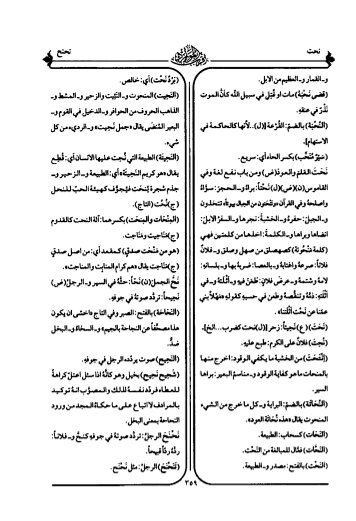 نحت
نحنح
و_القمار و_العظيم من الابل.
(قضى نحبه) مات او قُتِل في سبيل الله كأن الموت
نذرٌ في عنقه.
(النُّحْبَة) بالضم: القُرعة [(ل)..لأنها كالحاكمة في
الاستهام].
(سَيرٌ مُنَحِّب) بكسر الحاء أي: سريع.
نحتَ القلم والعودَ (ض) ومن باب نفع لغة وفي
القاموس (ن)(ض)(ل) نَحْتاً: براهُ و_الحجرَ: سوّاهُ
واصلحه وفي القرآن «وتنحتون من الجبال بيوتاً» تتخذون
و_الجبلَ: حفرهُ و_الخشبةَ: نجرها و_السفرُ الابلَ:
انضاها وبراها و_الكلمةَ: اخذها من كلمتين فهي
(كلمة منحوتة) كصهصلق من صهل وصلق و_فلانٌ
فلاناً: صرعهُ و_بالعصا: ضربهُ بها و_بلسانهِ:
لامهُ وشتمه و_عرضَ فلانٍ: طعن فيهِ و_أثلتَهُ و_في
أثلته: ذمّهُ وتنقّصهُ وطعن في حسبه كقوله «مهلاً بني
عمّنا عن نحت أثلتنا».
(نَحَتَ) (ع) نحيتاً: زحر [(ل) نحت كضرب...الخ].
(نُحِتَ) فلانٌ على الكرم: طبع عليه.
(انْتَحَتَ) من الخشبة ما يكفي الوقود: اخرج منها
بالمنحات ما هو كفاية الوقود و_مناسمُ البعير: براها
السير.
(النُّحَاتَة) بالضم: البراية و_كل ما خرج من الشيء
المنحوت يقال «هذه نُحَاتة العود».
(النَّحَات) كسحاب: الطبيعة.
(النَّحَّات) فعّال للمبالغة من النَّحت.
(النَّحْت) بالفتح: مصدر و_الطبيعة.
(بَرْدٌ نَحْت) أي: خالص.
(النحيت) المنحوت و_النّئيت والزحير و_المشط و_
الذاهب الحروف من الحوافر و_الدخيل في القوم و_
البعير المُنضَى يقال «جمل نحيت» و_الرديء من كل
شيء.
(النَّحِيتَة) الطبيعة التي نُحِت عليها الانسان أي: قُطِع
يقال «هو كريم النحيتة» أي: الطبيعة و_الزحير و_
جذم شجرة يُنحَت فيُجوَّف كهيئة الحُبّ للنحل
(ج) نُحُت (التاج).
(المِنْحَات والمِنحَت) بكسرهما: آلة النحت كالقدوم
(ج) مَناحيت ومَناحِت.
(هو من مَنْحَت صدق) كمقعد أي: من اصل صدق
(ج) مناحت يقال «هم كرام المنابت والمناحت».
نَحَّ الجملَ (ن) نَحّاً: حثّهُ في السير و_الرجلُ (ض)
نحيحاً: تردّد صوتهُ في جوفهِ.
(النَّحَاحَة) بالفتح: الصبر وفي التاج «اخشى ان يكون
هذا مصحّفاً عن النجاحة بالجيم» و_السخاء و_البخل
ضدّ.
(النحيح) صوت يردّده الرجل في جوفهِ.
(شحيح نحيح) بخيل وهو كأنه اذا سئل اعتلّ كراهةً
للعطاء فردّد نفسه لذلك والمصوّب انهُ توكيد
بالمرادف لا اتباع على ما حكاهُ المجد من ورود
النحاحة بمعنى البخل.
نَحْنَحَ الرجلُ: تردّد صوتهُ في جوفه كنحّ و_فلاناً:
ردّهُ ردّاً قبيحاً.
(تَنَحْنَحَ) الرجلُ: مثل نَحْنَح.
٣٥٩